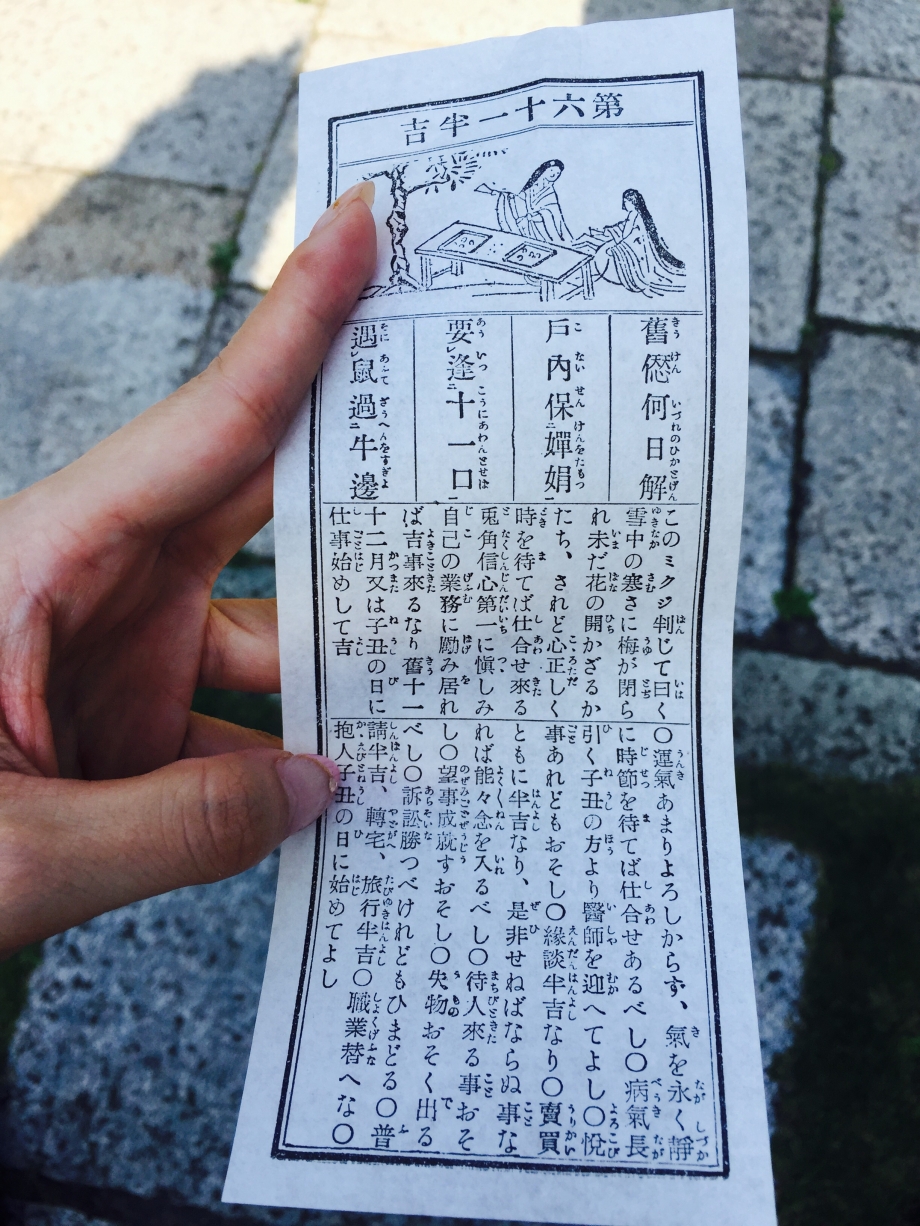 第六十一半吉
舊愆何日解
戶內保嬋娟
要逢十一口
遇鼠過牛邊
このミクジ判じて曰く
雪中の寒さに梅が閉ら
れ未だ花の開かざるか
たち、されど心正しく
時を待てば仕合せ來る
兎角信心第一に愼しみ
自己の業務に勵み居れ
ば吉事來るなり舊十一
十二月又は子丑の日に
仕事始めして吉
〇運氣あまりよろしからず、氣を永く靜
に時節を待てば仕合せあるべし〇病氣長
引く子丑の方より醫師を迎へてよし〇悅
事あれどもおそし〇緣談半吉なり〇賣買
ともに半吉なり、是非せねばならぬ事な
れば能々念を入るべし〇待人來る事おそ
し〇望事成就すおそし〇失物おそく出る
べし〇訴訟勝つべけれどもひまどる〇普
請半吉、轉宅、旅行半吉〇職業替へな〇
抱人子丑の日に始めてよし